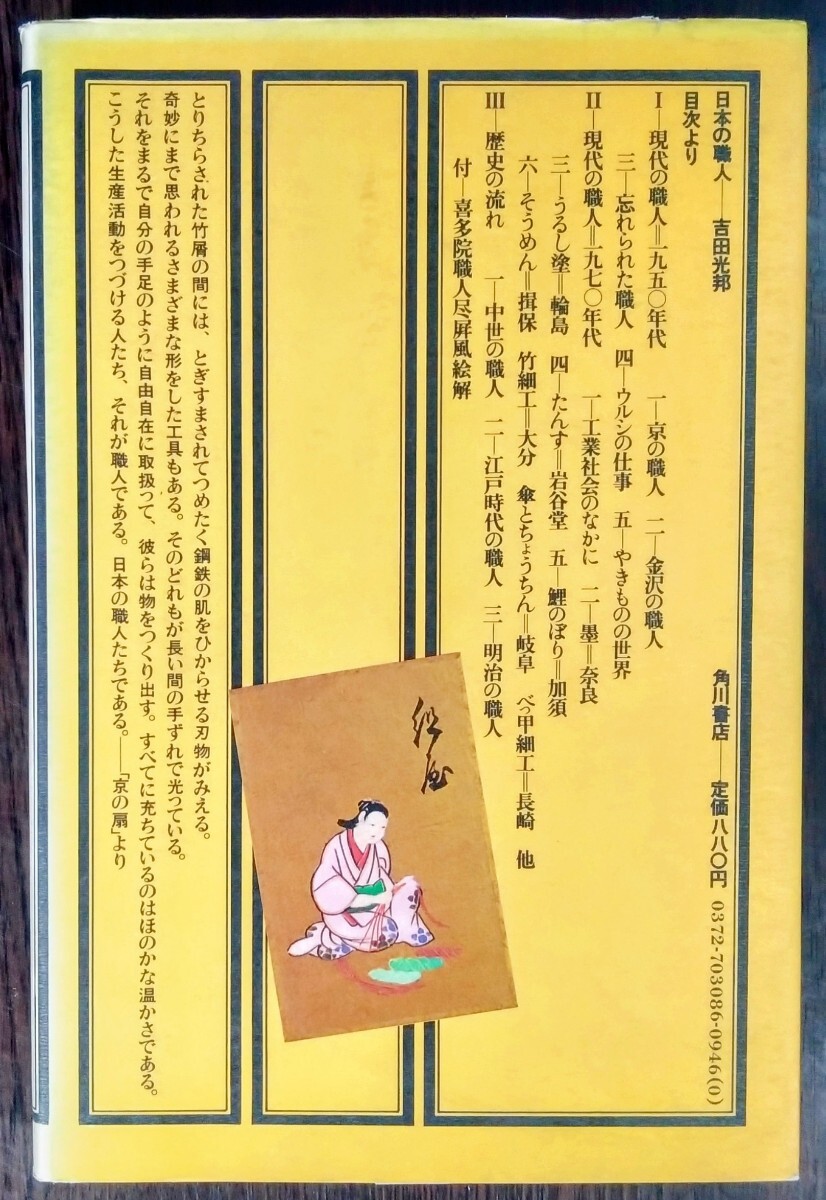 日本の職人――吉田光邦　角川書店――定価八八〇円 0372-703086-0946(0)
目次より
I―現代の職人＝一九五〇年代　一―京の職人　二―金沢の職人
三―忘れられた職人　四―ウルシの仕事　五―やきものの世界
II―現代の職人＝一九七〇年代　一―工業社会のなかに　二―墨＝奈良
三―うるし塗＝輪島　四―たんす＝岩谷堂　五―鯉のぼり＝加須
六―そうめん＝揖保　竹細工＝大分　傘とちょうちん＝岐阜　べっ甲細工＝長崎　他
III―歴史の流れ　一―中世の職人　二―江戸時代の職人　三―明治の職人
付―喜多院職人尽屏風絵解
とりちらされた竹屑の間には、とぎすまされてつめたく鋼鉄の肌をひからせる刃物がみえる。
奇妙にまで思われるさまざまな形をした工具もある。そのどれもが長い間の手ずれで光っている。
それをまるで自分の手足のように自由自在に取扱って、彼らは物をつくり出す。すべてに充ちているのはほのかな温かさである。
こうした生産活動をつづける人たち、それが職人である。日本の職人たちである。――「京の扇」より